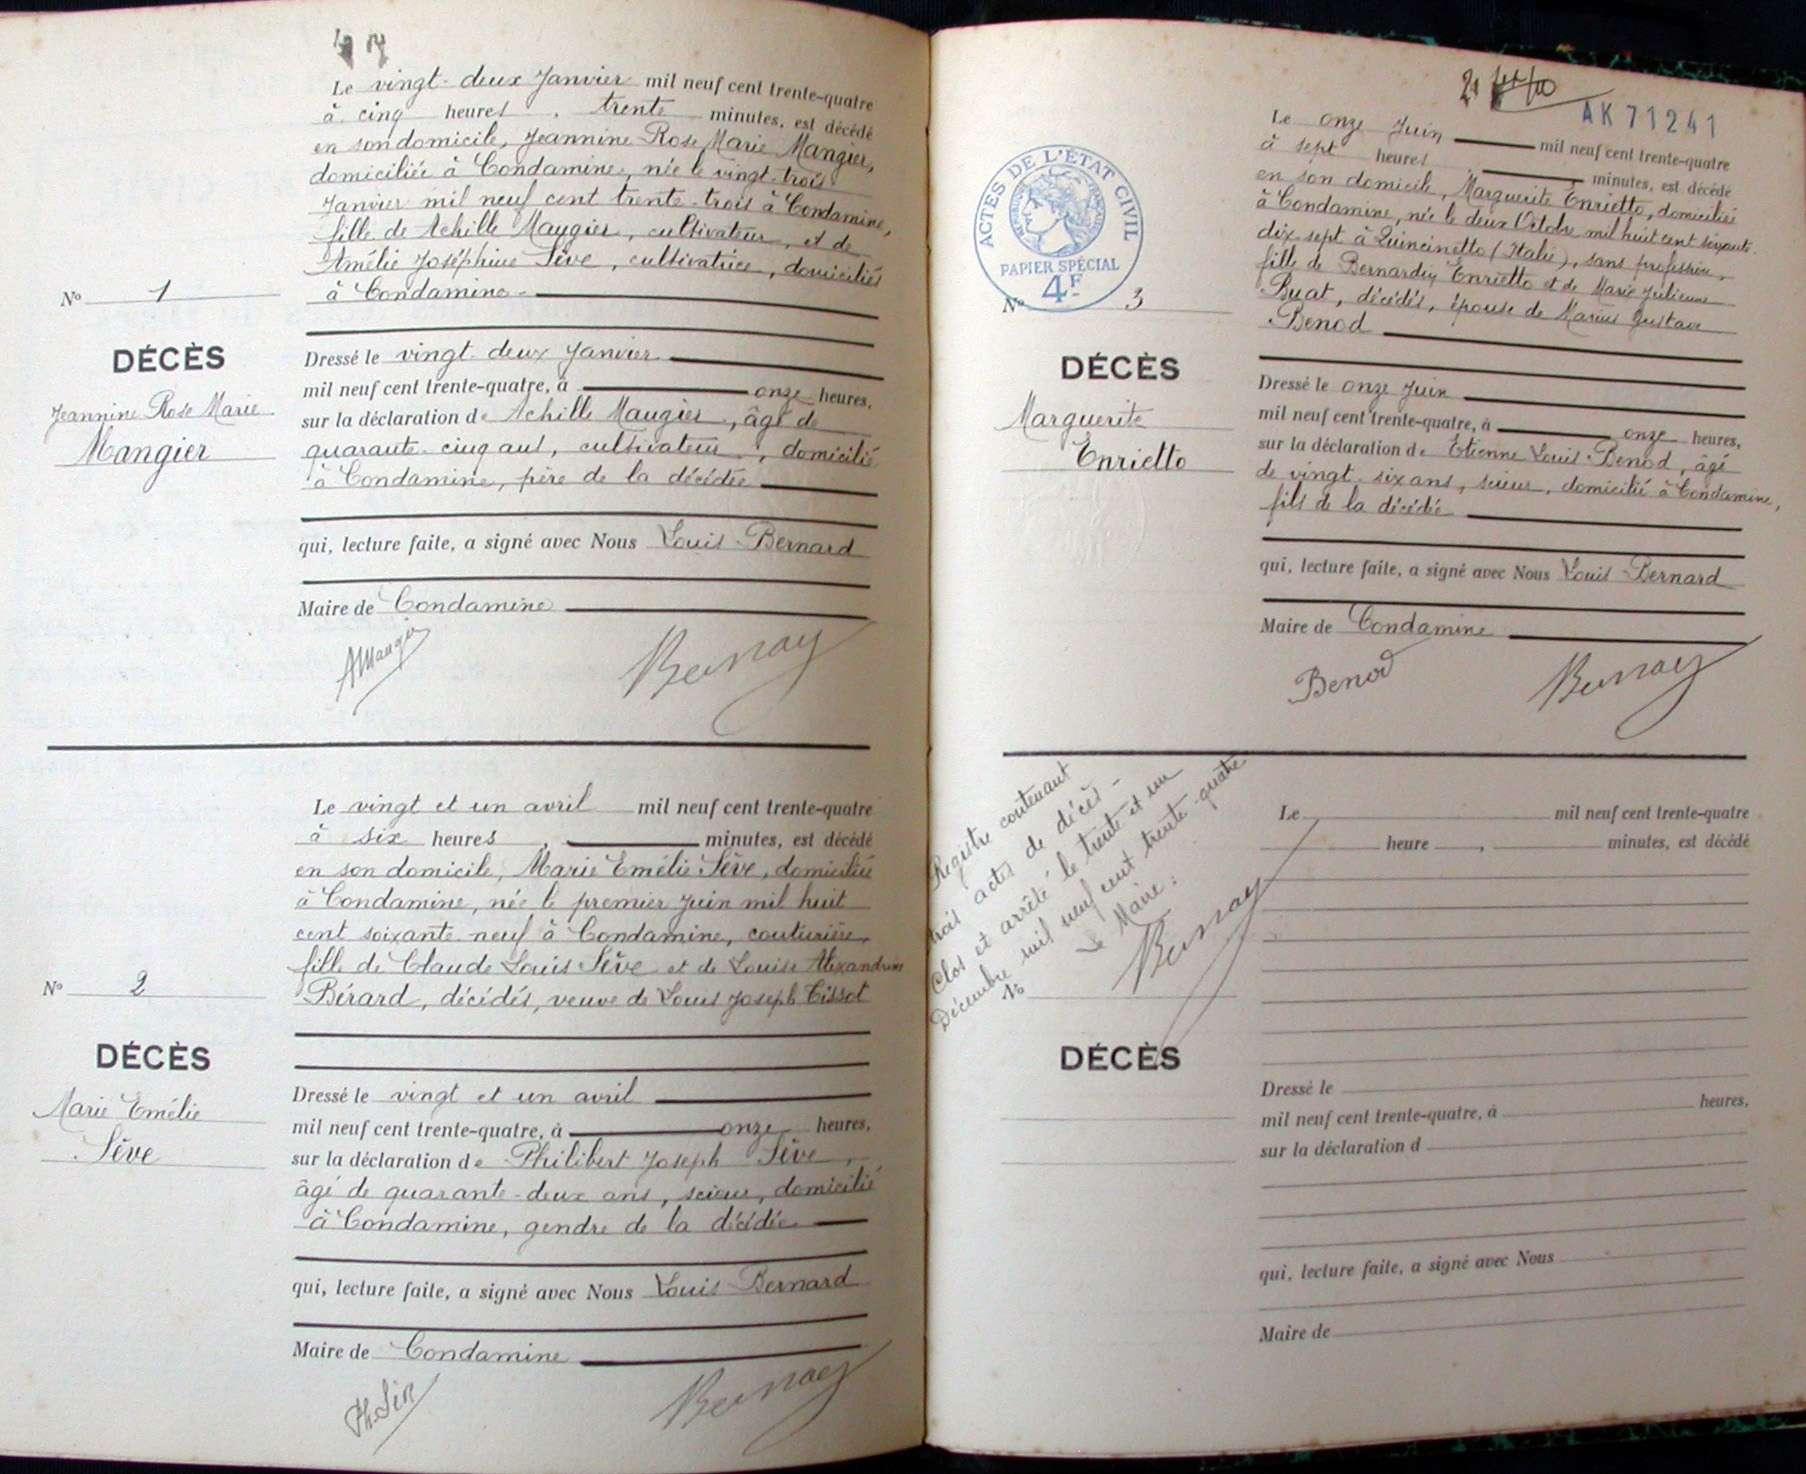 Le vingt-deux Janvier mil neuf cent trente-quatre
à cinq heures, trente minutes, est décédé
en son domicile, Jeannine Rose Marie Mangier,
domiciliée à Condamine, née le vingt-trois
Janvier mil neuf cent trente-trois à Condamine,
fille de Achille Maugier, cultivateur, et de
Amélie Joséphine Sève, cultivatrice, domiciliés
à Condamine
No 1
DÉCÈS
Jeannine Rose Marie
Mangier
Dressé le vingt-deux Janvier
mil neuf cent trente-quatre, à onze heures,
sur la déclaration de Achille Maugier, âgé de
quarante-cinq ans, cultivateur, domicilié
à Condamine, père de la décédée
qui, lecture faite, a signé avec Nous Louis Bernard
Maire de Condamine
AMaugier
Le vingt et un avril mil neuf cent trente-quatre
à six heures, minutes, est décédé
en son domicile, Marie Emélie Sève, domiciliée
à Condamine, née le premier Juin mil huit
cent soixante-neuf à Condamine, couturière,
fille de Claude Louis Sève et de Louise Alexandrine
Bérard, décédés, veuve de Louis Joseph Tissot
No 2
DÉCÈS
Marie Emélie
Sève
Dressé le vingt et un avril
mil neuf cent trente-quatre, à onze heures,
sur la déclaration de Philibert Joseph Sève,
âgé de quarante-deux ans, scieur, domicilié
à Condamine, gendre de la décédée
qui, lecture faite, a signé avec Nous Louis Bernard
Maire de Condamine
AK 71241
ACTES DE L'ÉTAT CIVIL
PAPIER SPÉCIAL
4F
Le onze Juin mil neuf cent trente-quatre
à sept heures minutes, est décédé
en son domicile, Marguerite Enrietto, domiciliée
à Condamine, née le deux Octobre mil huit cent soixante-
dix-sept à Quincinetto (Italie), sans profession,
fille de Bernardin Enrietto et de Marie Julienne
Buat, décédés, épouse de Marius Gustave
Benod
No 3
DÉCÈS
Marguerite
Enrietto
Dressé le onze Juin
mil neuf cent trente-quatre, à onze heures,
sur la déclaration de Etienne Louis Benod, âgé
de vingt-six ans, scieur, domicilié à Condamine,
fils de la décédée
qui, lecture faite, a signé avec Nous Louis Bernard
Maire de Condamine
Benod
Registre contenant
trois actes de décès -
Clos et arrêté le trente et un
Décembre mil neuf cent trente-quatre
Le Maire :
Le mil neuf cent trente-quatre
heure , minutes, est décédé
No
DÉCÈS
Dressé le
mil neuf cent trente-quatre, à heures,
sur la déclaration d
qui, lecture faite, a signé avec Nous
Maire de